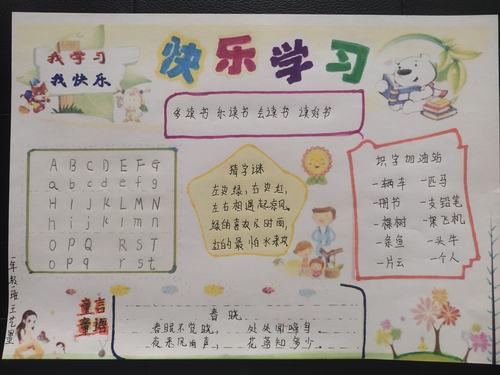 我学习
我快乐
快乐学习
多读书 乐读书 去读书 读好书
A B C D E F G
a b c d e f g
H I J K L M N
h i j k l m n
O P Q R S T
o p q r s t
猜字谜
左边绿，右边红，
左右相遇起凉风。
绿的喜欢及时雨，
红的最怕水来攻
识字加油站
一辆车 一匹马
一册书 一支铅笔
一棵树 一架飞机
一条鱼 一头牛
一片云 一个人
一年级二班 王艺
童言
童语
春晓
春眠不觉晓， 处处闻啼鸟。
夜来风雨声， 花落知多少。